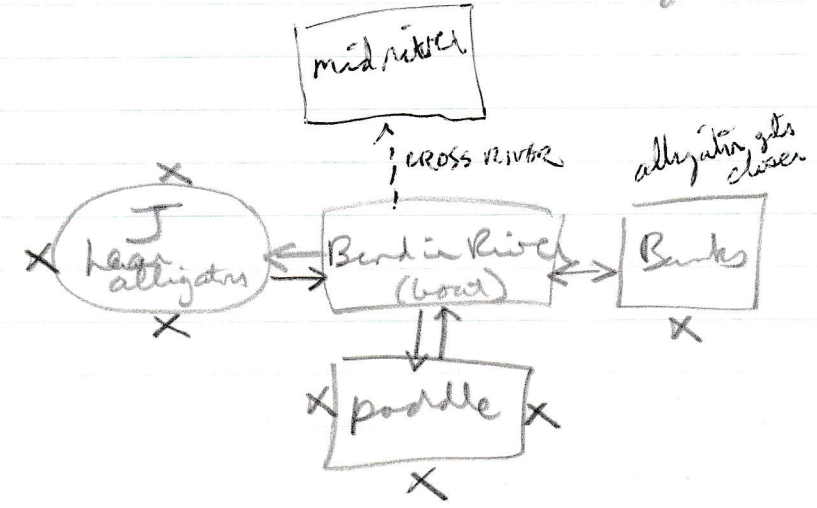 mid river
CROSS RIVER
alligator gets
closer
J
hear
alligators
Bend in River
(boat)
Banks
paddle
X
X
X
X
X
X
X